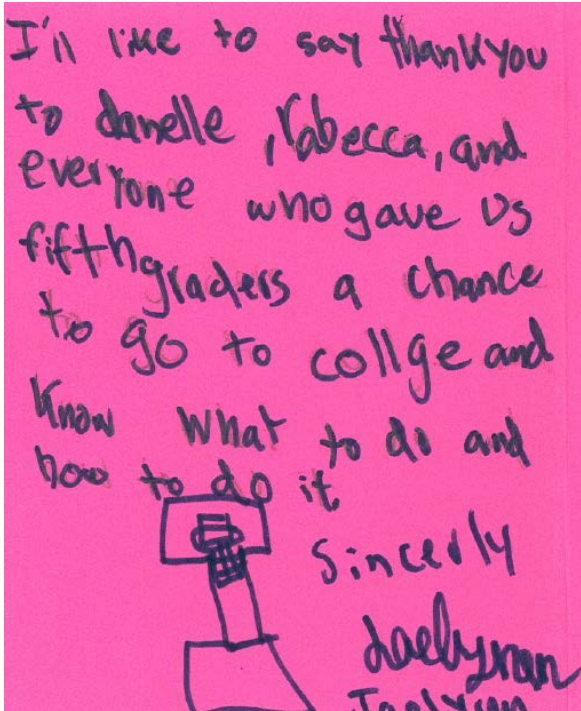 I'll like to say thankyou
to danelle, rabecca, and
everyone who gave us
fifth graders a chance
to go to collge and
know what to do and
how to do it
Sincerly